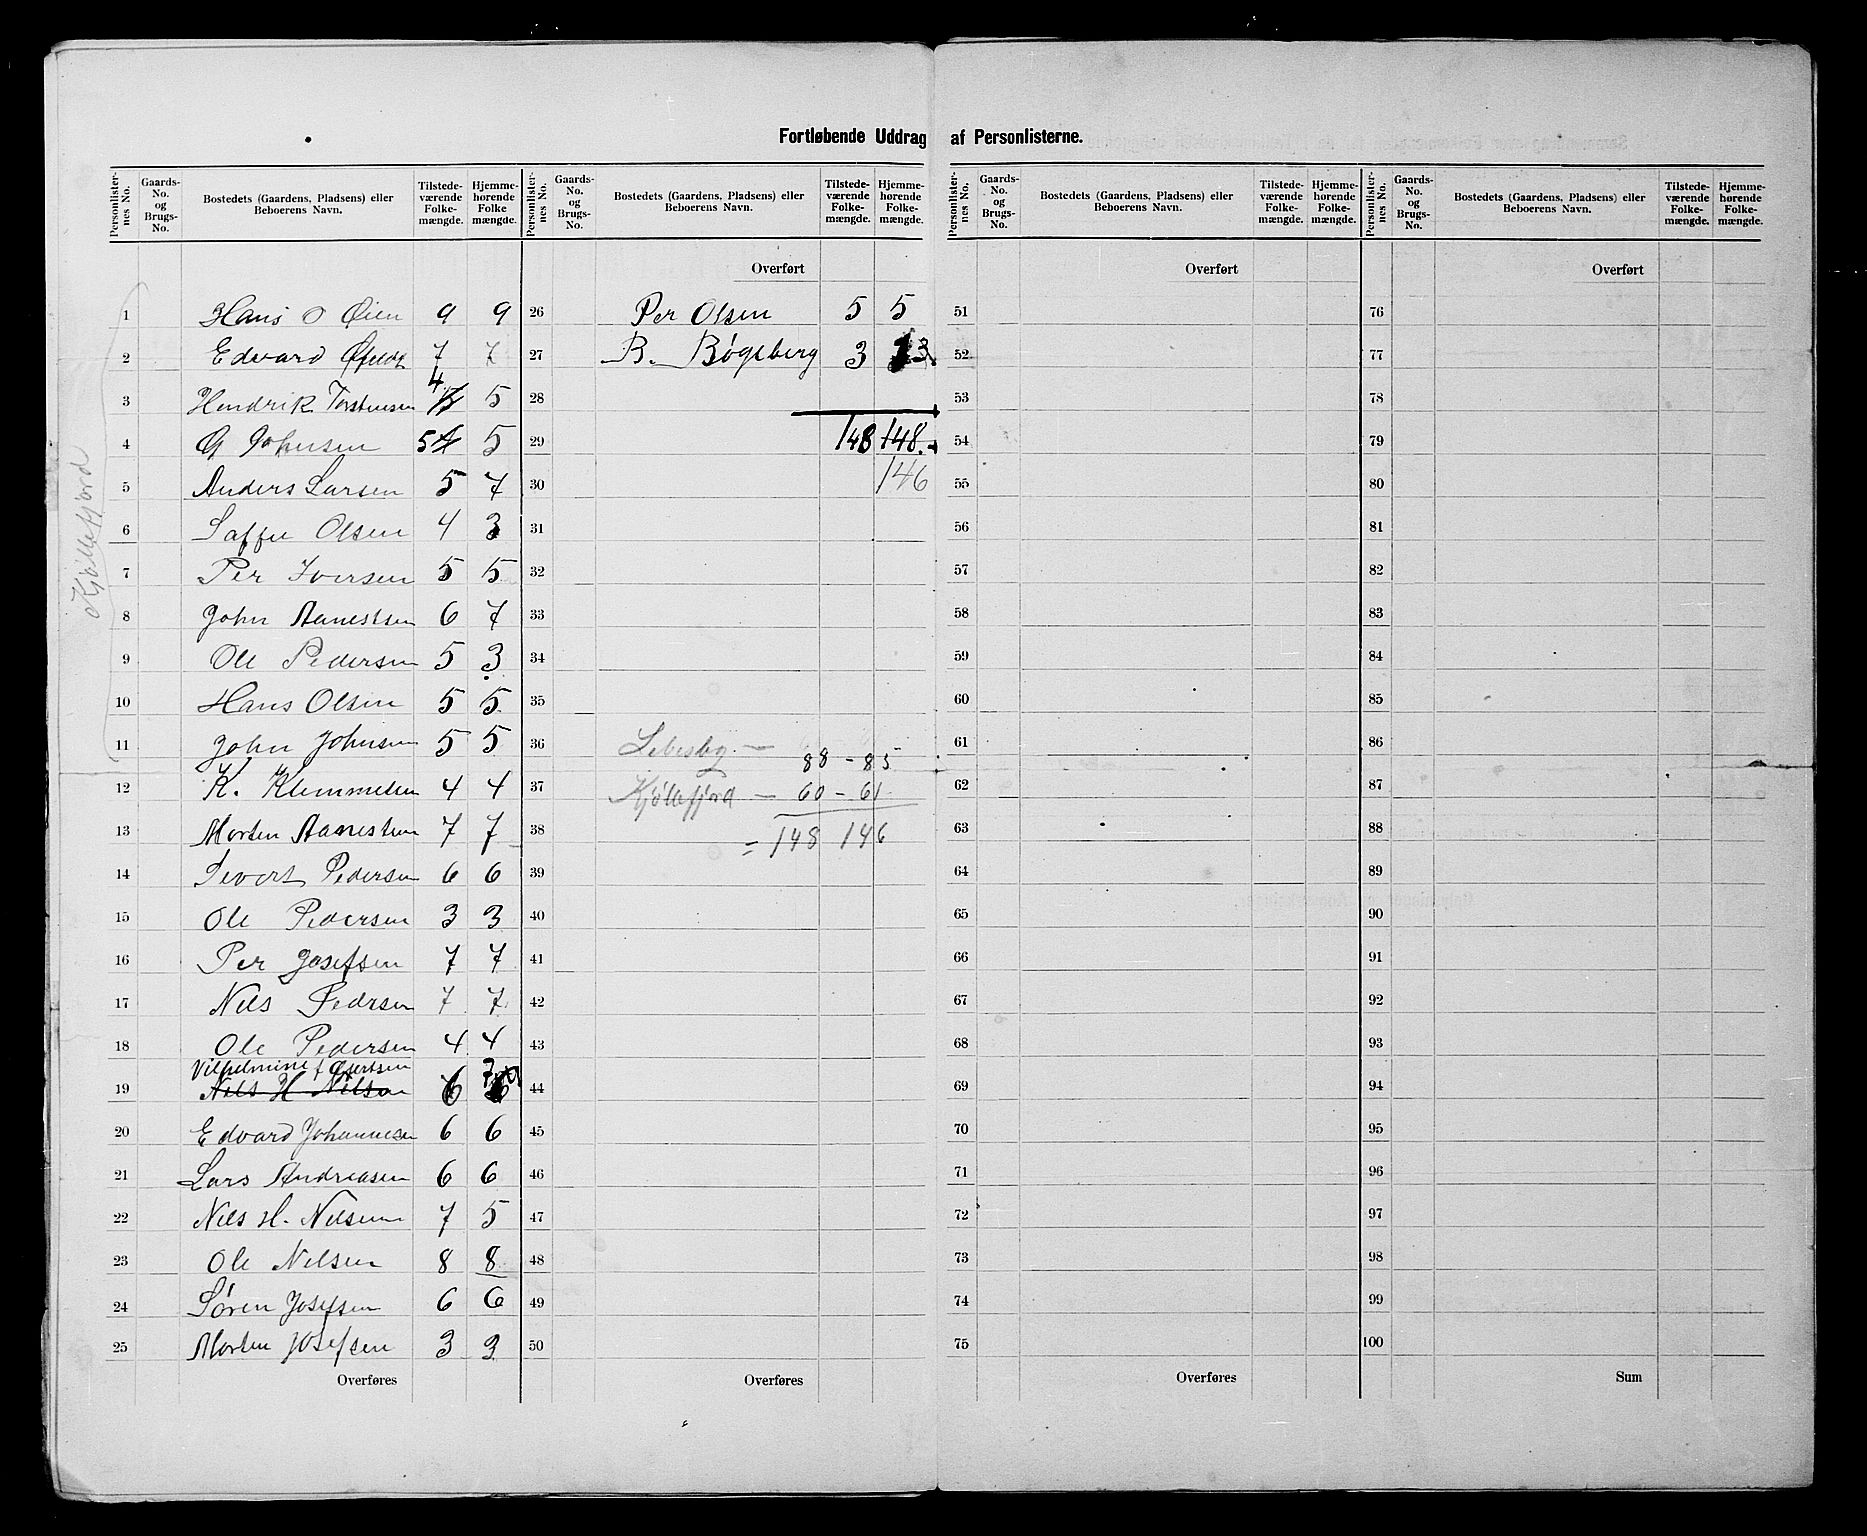 Fortløbende Uddrag af Personlisterne.
Personlister-nes No. Gaards-No. og Brugs-No. Bostedets (Gaardens, Pladsens) eller Beboerens Navn. Tilstede-værende Folke-mængde. Hjemme-hørende Folke-mængde.
Kjøllefjord
1 Hans O Øien 9 9
2 Edvard 7 7
3 Hendrik Torstensen 4 5
4 G Johnsen 5 4 5
5 Anders Larsen 5 7
6 Olsen 4 3
7 Per Iversen 5 5
8 John Aanestsen 6 7
9 Ole Pedersen 5 3
10 Hans Olsen 5 5
11 John Johnsen 5 5
12 K. Klemmetsen 4 4
13 Morten Aanestsen 7 7
14 Sivert Pedersen 6 6
15 Ole Pedersen 3 3
16 Per Josefsen 7 7
17 Nils Pedersen 7 7
18 Ole Pedersen 4 4
Vilhelmine
19 Nils H Nilsen 6
20 Edvard Johannesen 6 6
21 Lars Andreasen 6 6
22 Nils H. Nilsen 7 5
23 Ole Nilsen 8 8
24 Søren Josefsen 6 6
25 Morten Josefsen 3 3
Overføres
Personlister-nes No. Gaards-No. og Brugs-No. Bostedets (Gaardens, Pladsens) eller Beboerens Navn. Tilstede-værende Folke-mængde. Hjemme-hørende Folke-mængde.
Overført
26 Per Olsen 5 5
27 B. Bøgeberg 3 3
28
29 148 148.
30 146
31
32
33
34
35
36 Lebesby — 88 – 85
37 Kjøllefjord — 60 – 61
38 = 148 146
39
40
41
42
43
44
45
46
47
48
49
50
Overføres
Personlister-nes No. Gaards-No. og Brugs-No. Bostedets (Gaardens, Pladsens) eller Beboerens Navn. Tilstede-værende Folke-mængde. Hjemme-hørende Folke-mængde.
Overført
51
52
53
54
55
56
57
58
59
60
61
62
63
64
65
66
67
68
69
70
71
72
73
74
75
Overføres
Personlister-nes No. Gaards-No. og Brugs-No. Bostedets (Gaardens, Pladsens) eller Beboerens Navn. Tilstede-værende Folke-mængde. Hjemme-hørende Folke-mængde.
Overført
76
77
78
79
80
81
82
83
84
85
86
87
88
89
90
91
92
93
94
95
96
97
98
99
100
Sum